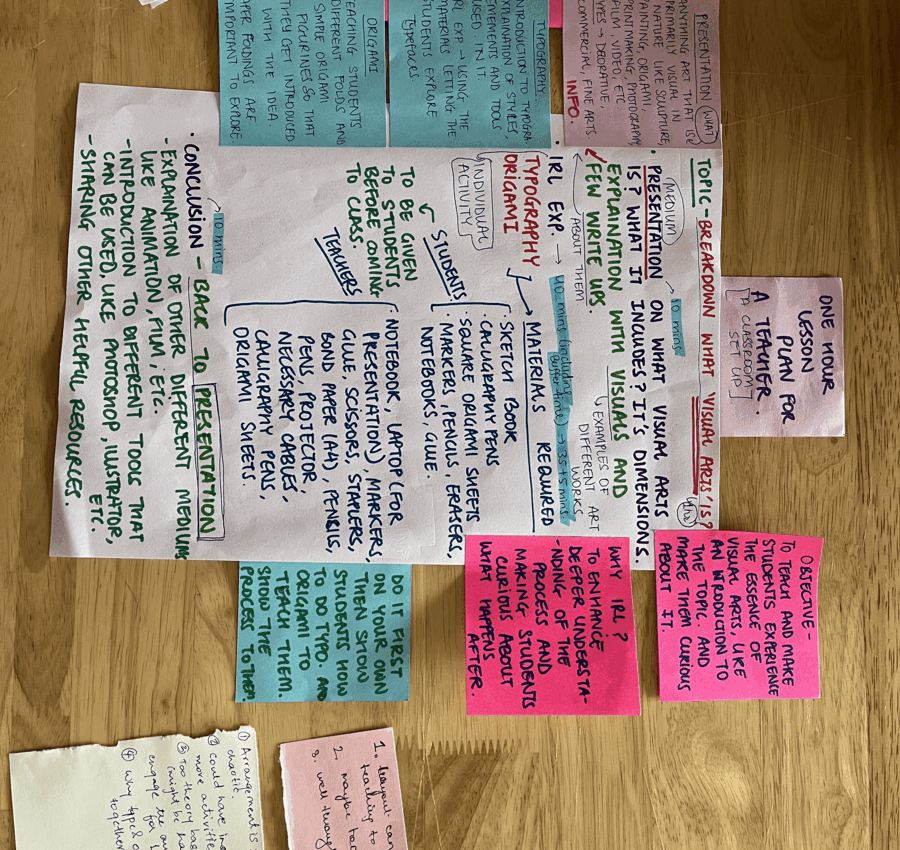 ONE HOUR
LESSON
PLAN FOR
A TEACHER.
[A CLASSROOM
SET UP]
TOPIC - BREAKDOWN WHAT 'VISUAL ARTS' IS?
(MEDIUM)
→ 10 mins.
PRESENTATION ON WHAT VISUAL ARTS
IS? WHAT IT INCLUDES? IT'S DIMENSIONS.
EXPLAINATION WITH VISUALS AND
→ EXAMPLES OF
DIFFERENT ART
WORKS
FEW WRITE UPS.
ABOUT THEM
IRL EXP. → 40 mins (including
Buffer time) → 35+5 mins.
TYPOGRAPHY
ORIGAMI
INDIVIDUAL
ACTIVITY
MATERIALS REQUIRED
STUDENTS
• SKETCH BOOK
• CALLIGRAPHY PENS
• SQUARE ORIGAMI SHEETS
• MARKERS, PENCILS, ERASERS,
NOTEBOOKS, GLUE.
TO BE GIVEN
TO STUDENTS
BEFORE COMING
TO CLASS.
TEACHERS
• NOTEBOOK, LAPTOP (FOR
PRESENTATION), MARKERS,
GLUE, SCISSORS, STAPLERS,
BOND PAPER (A4), PENCILS,
PENS, PROJECTOR,
NECESSARY CABLES,
CALLIGRAPHY PENS,
ORIGAMI SHEETS.
→ 10 mins.
• CONCLUSION - BACK TO PRESENTATION
- EXPLAINATION OF OTHER DIFFERENT MEDIUMS
LIKE ANIMATION, FILM, ETC.
- INTRODUCTION TO DIFFERENT TOOLS THAT
CAN BE USED, LIKE PHOTOSHOP, ILUSTRATOR,
ETC.
- SHARING OTHER HELPFUL RESOURCES.
PRESENTATION (WHAT
ANYTHING ART THAT IS
PRIMARILY VISUAL IN
NATURE LIKE SCULPTURE,
PAINTING, ORIGAMI,
PRINTMAKING, PHOTOGRAPHY,
FILM, VIDEO, ETC
TYPES → DECORATIVE,
COMMERCIAL, FINE ARTS
INFO.
TYPOGRAPHY
INTRODUCTION TO TYPOGRA
EXPLANATION OF STYLES,
ELEMENTS AND TOOLS
USED IN IT.
IRL EXP → USING THE
MATERIALS LETTING THE
STUDENTS EXPLORE
TYPEFACES.
ORIGAMI
TEACHING STUDENTS
DIFFERENT FOLDS AND
SIMPLE ORIGAMI
FIGURINES SO THAT
THEY GET INTRODUCED
WITH THE IDEA
PAPER FOLDINGS ARE
IMPORTANT TO EXPLORE
OBJECTIVE -
TO TEACH AND MAKE
STUDENTS EXPERIENCE
THE ESSENCE OF
VISUAL ARTS, LIKE
AN INTRODUCTION TO
THE TOPIC. AND
MAKE THEM CURIOUS
ABOUT IT.
WHY IRL?
TO ENHANCE
DEEPER UNDERSTA-
-NDING OF THE
PROCESS AND
MAKING STUDENTS
CURIOUS ABOUT
WHAT HAPPENS
AFTER.
DO IT FIRST
ON YOUR OWN
THEN SHOW
STUDENTS HOW
TO DO TYPO. AND
ORIGAMI TO
TEACH THEM.
SHOW THE
PROCESS TO THEM
1. layout can
teaching to
2. maybe
3. well though
① Arrangement is
chaotic.
② Could have
more activitie
③ Too theory bas
(might be ha
engage the au
for
④ Why type &
together